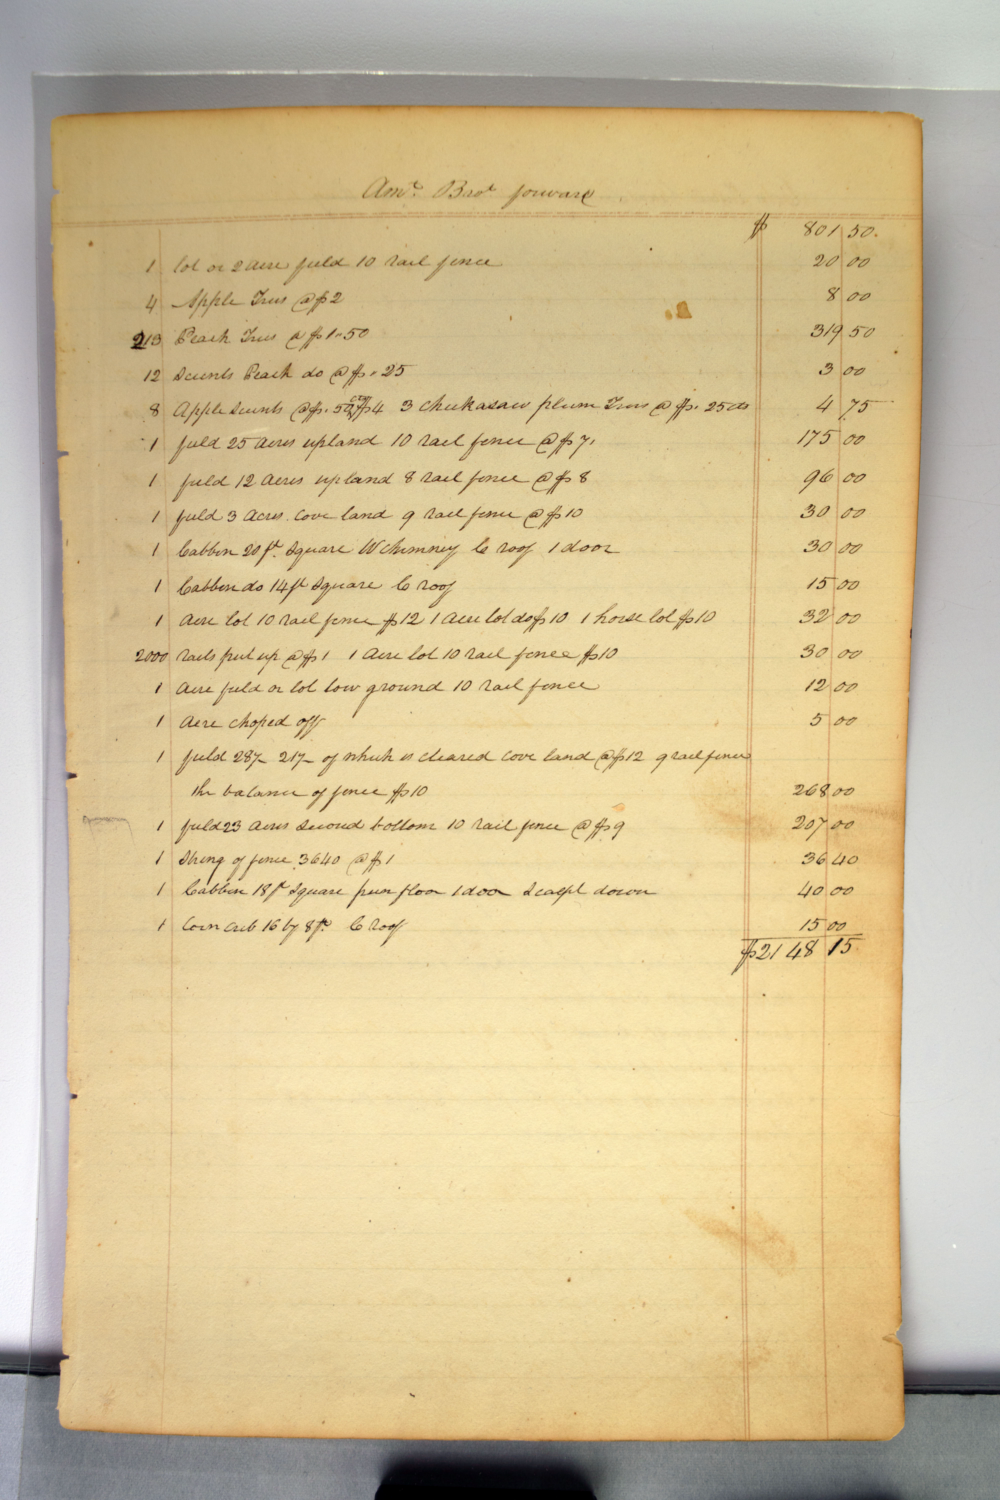 Amt. Brot forward
$ 801 50.
1 lot or 2 acre field 10 rail fence 20 00
4 Apple Trees @ $2 8 00
213 Peach Trees @ $1-50 319 50
12 Scients Peach do @ $.25 3 00
8 Apple Scients @ $.50 cts $4 3 chickasaw plum Trees @ $.25 cts 4 75
1 field 25 acres upland 10 rail fence @ $7. 175 00
1 field 12 acres upland 8 rail fence @ $8 96 00
1 field 3 acres cove land 9 rail fence @ $10 30 00
1 Cabbin 20 ft. Square W chimney C roof 1 door 30 00
1 Cabben do 14 ft Square C roof 15 00
1 acre lot 10 rail fence $12 1 acre lot do $10 1 horse lot $10 32 00
2000 rails put up @ $1 1 acre lot 10 rail fence $10 30 00
1 acre field or lot low ground 10 rail fence 12 00
1 acre choped off 5 00
1 field 28 21 of which is cleared cove land @ $12 9 rail fence
the balance of fence $10 268 00
1 field 23 acres second bottom 10 rail fence @ $9 207 00
1 String of fence 3640 @ $1 36 40
1 Cabbin 18 ft Square pun floor 1 door Scalpt down 40 00
1 Corn crib 16 by 8 ft. C roof 15 00
$2148 15